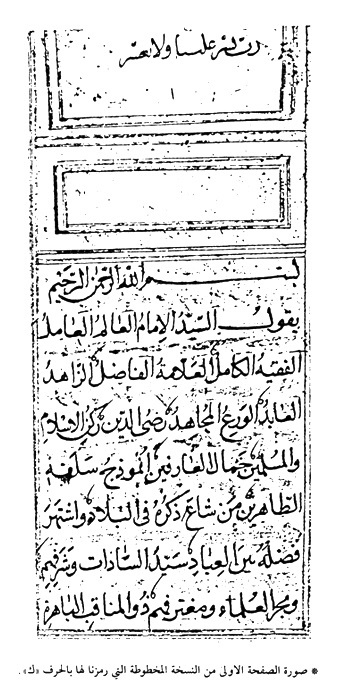 رب يسر علينا ولا تعسر
بسم الله الرحمن الرحيم
يقول السيد الإمام العالم العامل
الفقيه الكامل العلامة الفاضل الزاهد
العابد الورع المجاهد رضى الدين ركن الاسلام
والمسلمين جمال العارفين انموذج سلفه
الطاهرين من شاع ذكره فى البلاد واشتهر
فضله بين العباد سند السادات وشريفهم
العلماء ومغترفهم ذو المناقب الباهرة
* صورة الصفحة الاولى من النسخة المخطوطة التي رمزنا لها بالحرف «ك».